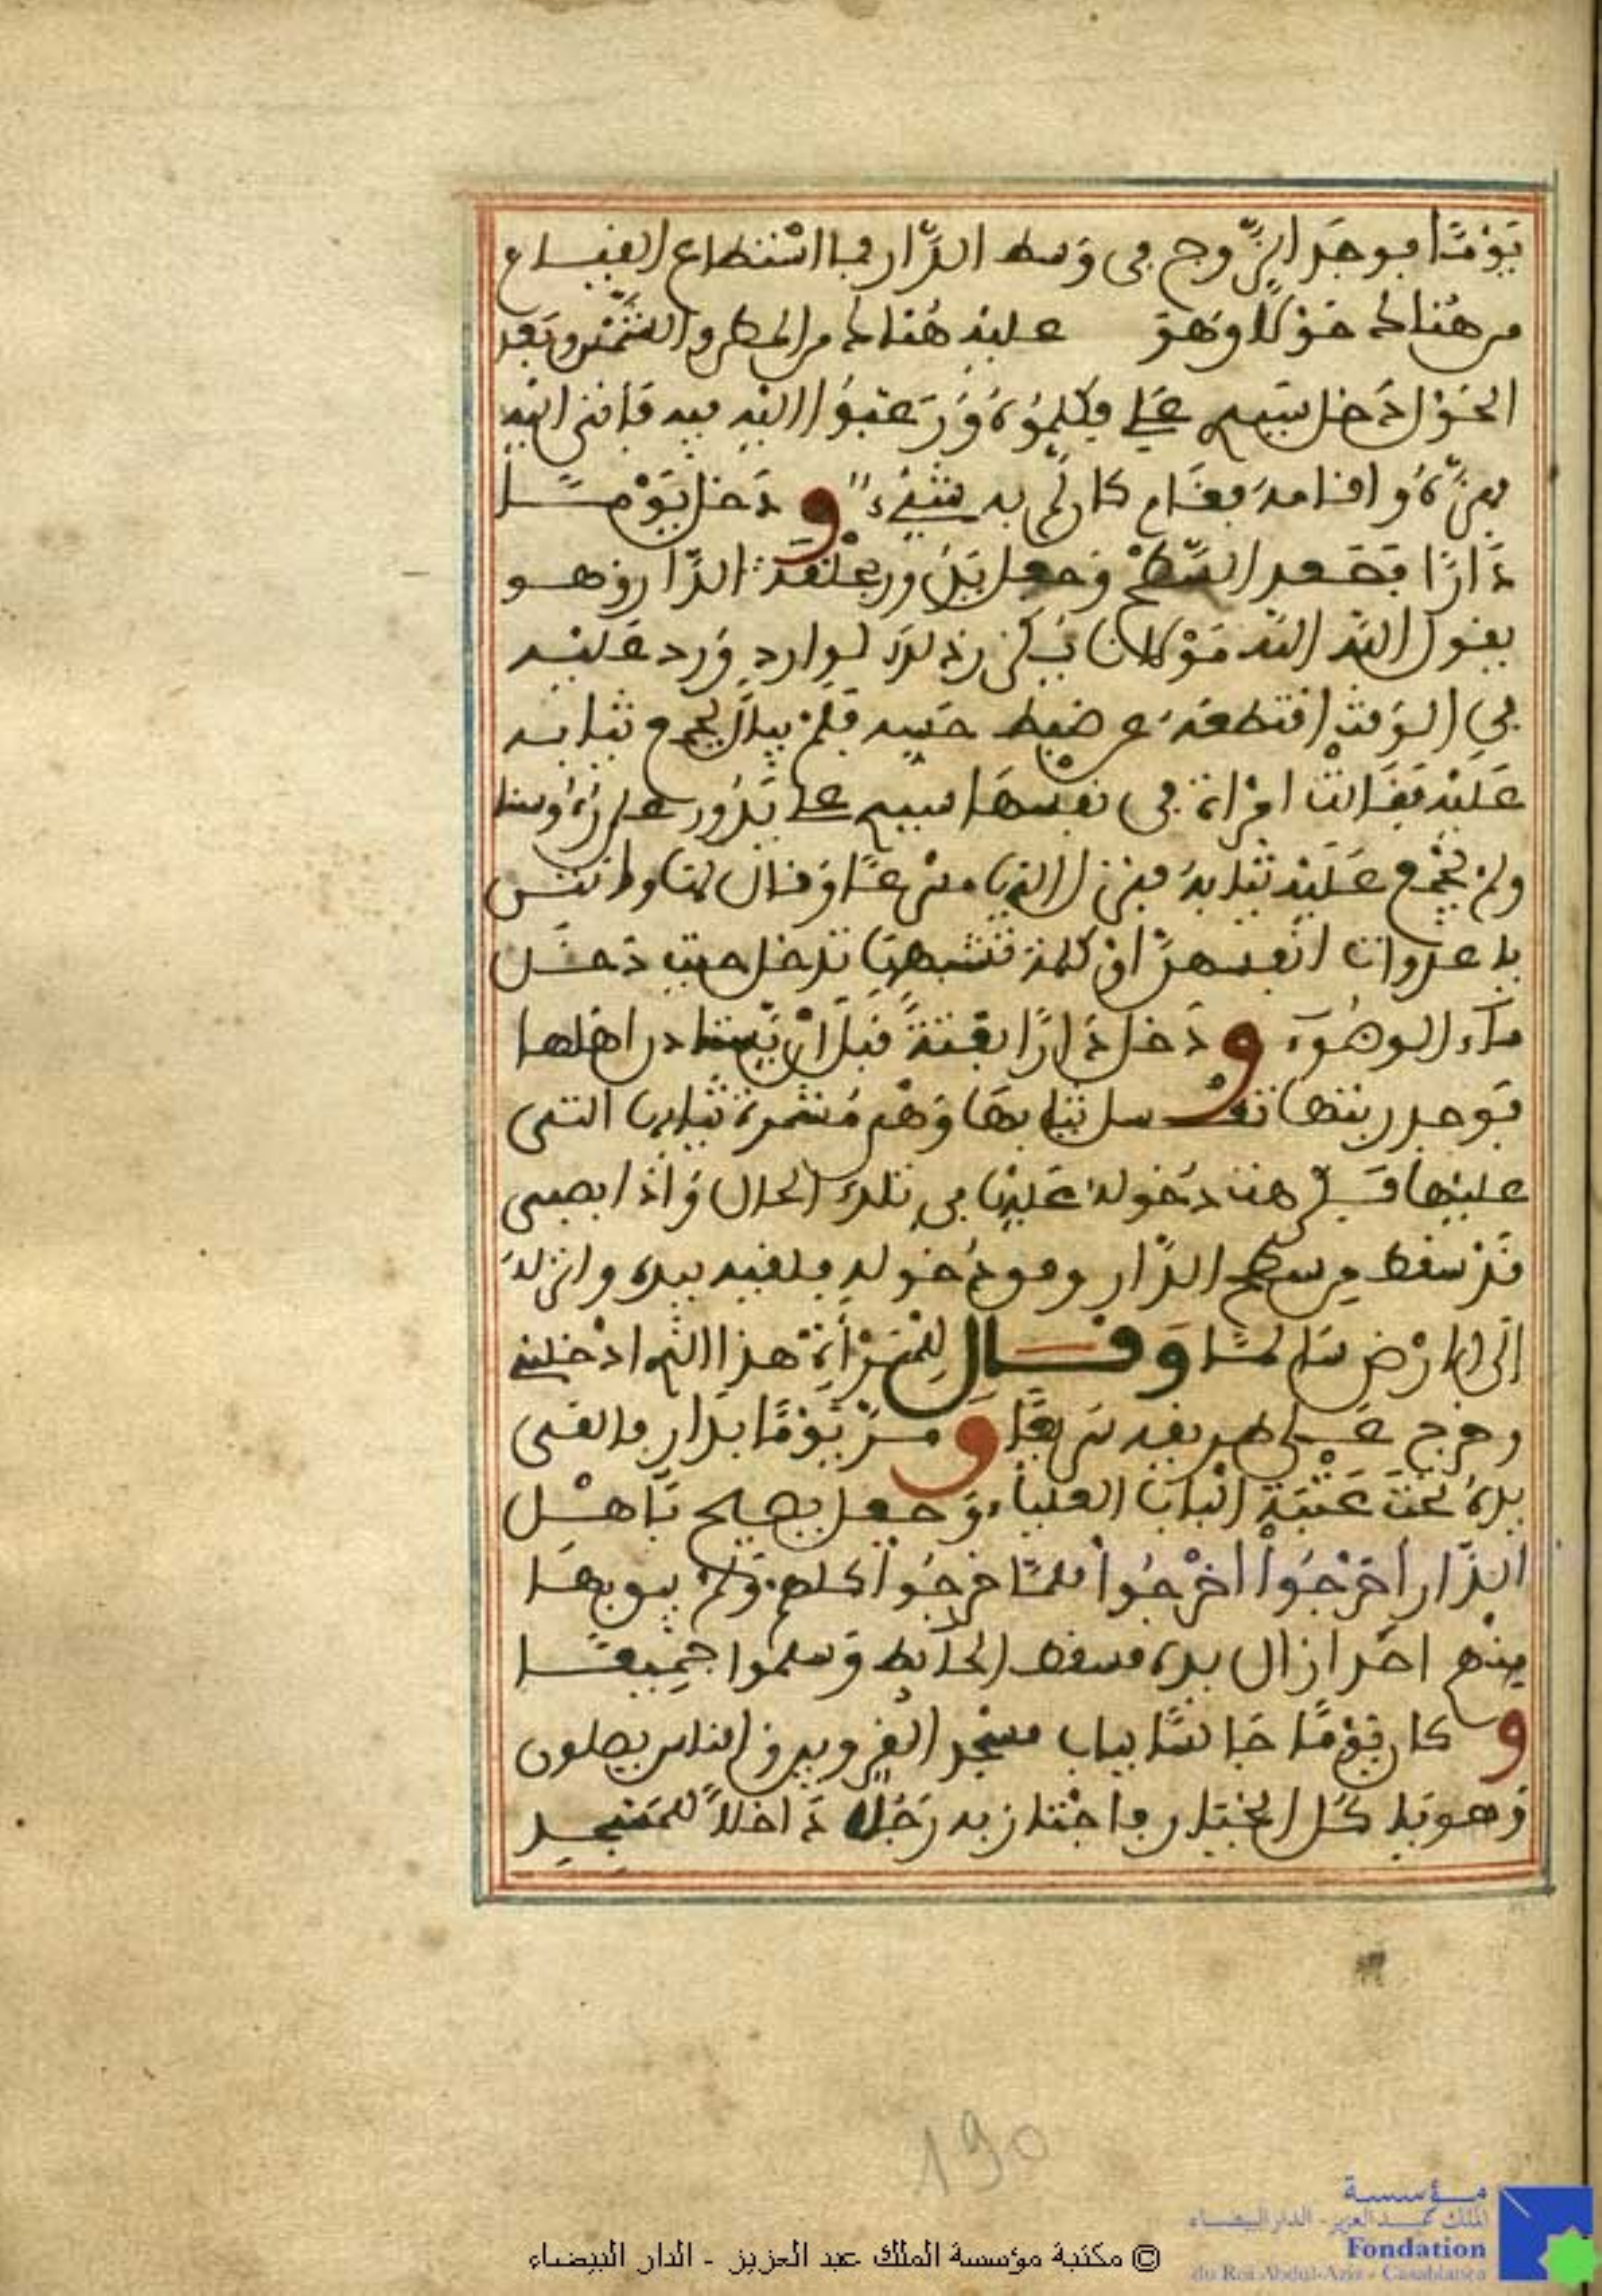 يَوْمًا فوجَد الزّوج في وَسط الدَّار فما اسْتطاع القيام
من هُنالك حَوْلًا وَهوَ عليْهِ هُنالك من المطر والشَّمْس وبَعد
الحَوْل دَخل سيدي علي فكلمُوهُ وَرَغبُوا اليْه فيه فَأتى اليْه
فهزَّهُ واقامهُ فقَام كان لمْ يكن به شيْءٌ وَدَخل يَوْمًا
دَارًا فصَعد السَّطحْ وَجعل يَدُور بحلقة الدَّار وهو
يقول الله الله مَوْلانا يُكَرر ذلك لوارد وَرد عَليْه
في الوَقتْ اقتطعَهُ عن ضبط حسه فلمْ يبال بجمع ثيابه
عَليْه فقَالتْ امْرأة في نفسهَا سيدي علي يَدُور على رُءُوسنا
ولم يجْمع عَليْه ثيابهُ فنزل اليها مسْرعًا وَقال لها وطأتس
يا عدوات انفسهنَّ اوْ كلمة تشبههَا تدخل حيث دَخل
مآء الوضُوء وَدَخل دَارًا بغْتةً قبل أنْ يَستاذن اهلها
فوَجد ربتها تغْسل ثيابهَا وَهْي مُشمرة ثيابها التي
عليْها فكرهت دخوله عَليْها في تلك الحال وَاذا بصبي
قدْ سقط من سطح الدَّار وقت دخوله فلقيه بيده وانزلهُ
الى الارْض سَالمًا وَقَال لِلْمَرْأَةِ هذا الذي ادْخلني
وخرج عَلى طريقه سَريعًا وَمرّ يَوْمًا بدَار فالقى
يدهُ تحت عَتْبة البَاب العلياء وَجعل يصيح يَا هْل
الدَّار أخرجُوا أخْرجُوا فلمّا خرجُوا كلهم وَلمْ يبق بهَا
منْهم احَد ازال يده فسقط الحَايط وَسلموا جميعًا
وَكان يَوْمًا جَالسًا بباب مسْجد القرويين والناس يصلون
وَهو يَا كل الخيار فاجْتاز به رَجُلٌ دَاخلًا للمسْجد
190
مؤسسة
الملك عبد العزيز - الدار البيضاء
Fondation
du Roi Abdul-Aziz - Casablanca
© مكتبة مؤسسة الملك عبد العزيز - الدار البيضاء